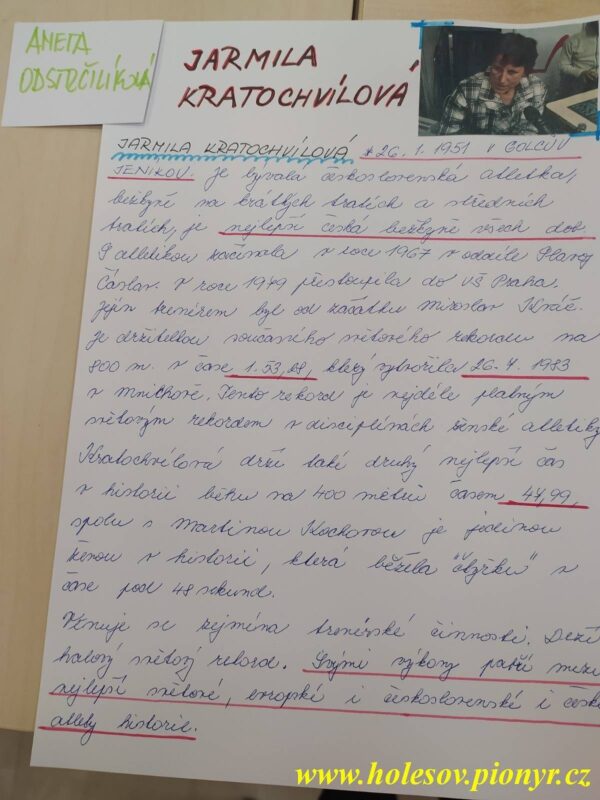 ANETA
ODSTRČILÍKOVÁ
JARMILA
KRATOCHVÍLOVÁ
JARMILA KRATOCHVÍLOVÁ * 26. 1. 1951 v GOLČŮV
JENÍKOV. je bývalá československá atletka,
běžkyně na krátkých tratích a středních
tratích, je nejlepší česká běžkyně všech dob.
S atletikou začínala v roce 1967 v oddíle Slavoj
Čáslav. V roce 1979 přestoupila do VŠ Praha.
Jejím trenérem byl od začátku Miroslav Kváč.
Je držitelkou současného světového rekordu na
800 m. v čase 1.53,28, který vytvořila 26. 7. 1983
v Mnichově. Tento rekord je nejdéle platným
světovým rekordem v disciplínách ženské atletiky
Kratochvílová drží také druhý nejlepší čas
v historii běhu na 400 metrů časem 47,99,
spolu s Martinou Kochovou je jedinou
ženou v historii, která běžela "čtyřku" v
čase pod 48 sekund.
Věnuje se zejména trenérské činnosti. Drží
halový světový rekord. Svými výkony patří mezi
nejlepší světové, evropské i československé i české
atlety historie.
www.holesov.pionyr.cz